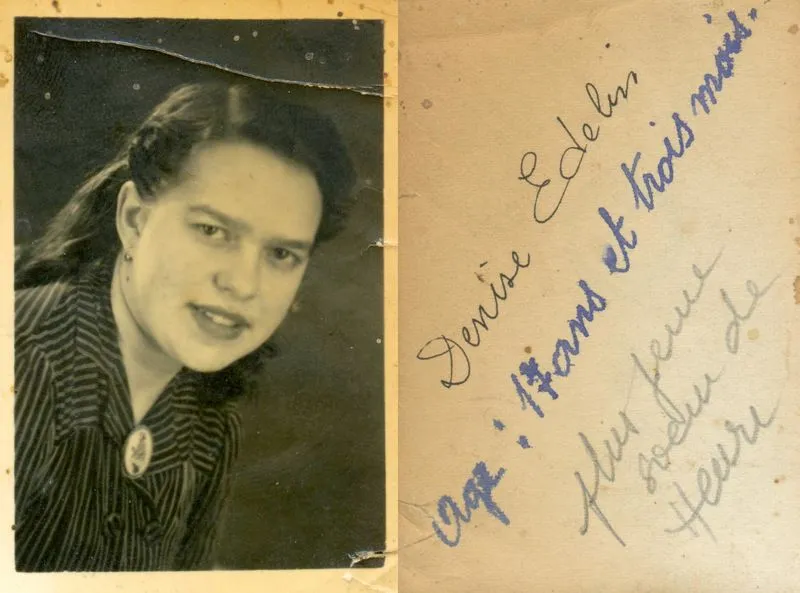 Denise Edelin
Age : 17 ans et trois mois.
plus jeune
soeur de
Henri